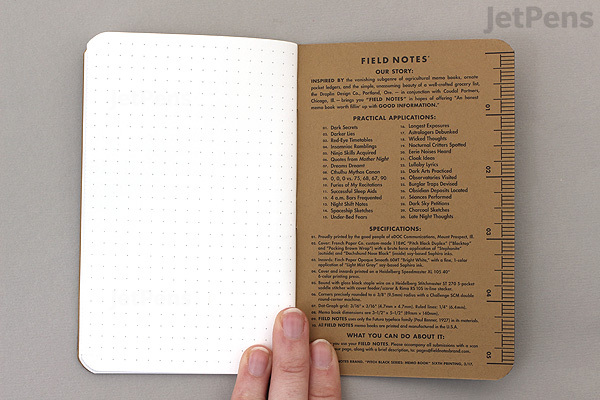 JetPens
FIELD NOTES
OUR STORY:
INSPIRED BY the vanishing subgenre of agricultural memo books, ornate
pocket ledgers, and the simple, unassuming beauty of a well-crafted grocery list,
the Draplin Design Co., Portland, Ore. — in conjunction with Coudal Partners,
Chicago, Ill. — brings you "FIELD NOTES" in hopes of offering "An honest
memo book worth fillin' up with GOOD INFORMATION."
PRACTICAL APPLICATIONS:
01. Dark Secrets
02. Darker Lies
03. Red-Eye Timetables
04. Insomniac Ramblings
05. Ninja Skills Acquired
06. Quotes from Mother Night
07. Dreams Dreamt
08. Cthulhu Mythos Canon
09. 0, 0, 0 vs. 75, 68, 67, 90
10. Furies of My Recitations
11. Successful Sleep Aids
12. 4 a.m. Bars Frequented
13. Night Shift Notes
14. Spaceship Sketches
15. Under-Bed Fears
16. Longest Exposures
17. Astrologers Debunked
18. Wicked Thoughts
19. Nocturnal Critters Spotted
20. Eerie Noises Heard
21. Cloak Ideas
22. Lullaby Lyrics
23. Dark Arts Practiced
24. Observatories Visited
25. Burglar Traps Devised
26. Obsidian Deposits Located
27. Séances Performed
28. Dark Sky Petitions
29. Charcoal Sketches
30. Late Night Thoughts
SPECIFICATIONS:
01. Proudly printed by the good people of eDOC Communications, Mount Prospect, Ill.
02. Cover: French Paper Co. custom made 110#C "Pitch Black Duplex" ("Blacktop"
and "Packing Brown Wrap") with a brute force application of "Stephanite"
(outside) and "Dachsund Nose Black" (inside) soy-based Saphira inks.
03. Innards: French Paper Opaque Smooth 60#T "Bright White," with a fine, 1-color
application of "Light Mist Gray" soy-based Saphira ink.
04. Cover and innards printed on a Heidelberg Speedmaster XL 105 40"
6-color printing press.
05. Bound with glossy black staple wire on a Heidelberg Stitchmaster ST 270 5-pocket
saddle stitcher with cover feeder/scorer & Rima RS 10S in-line stacker.
06. Corners precisely rounded to a 3/8" (9.5mm) radius with a Challenge SCM double
round-corner machine.
07. Dot-Graph grid: 3/16" x 3/16" (4.7mm x 4.7mm), Ruled lines: 1/4" (6.4mm).
08. Memo book dimensions are 3-1/2" x 5-1/2" (89mm x 140mm).
09. FIELD NOTES uses only the Futura typeface family (Paul Renner, 1927) in its materials.
10. All FIELD NOTES memo books are printed and manufactured in the U.S.A.
WHAT YOU CAN DO ABOUT IT:
you use your FIELD NOTES. Please accompany all submissions with a scan
your page, along with a brief description, to: pages@fieldnotesbrand.com.
NOTES BRAND. "PITCH BLACK SERIES: MEMO BOOK" SIXTH PRINTING, 5/17.
01
02
03
04
05